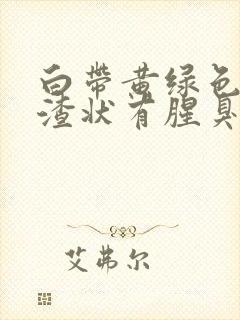 白带黄绿色
渣状有腥臭
艾弗尔